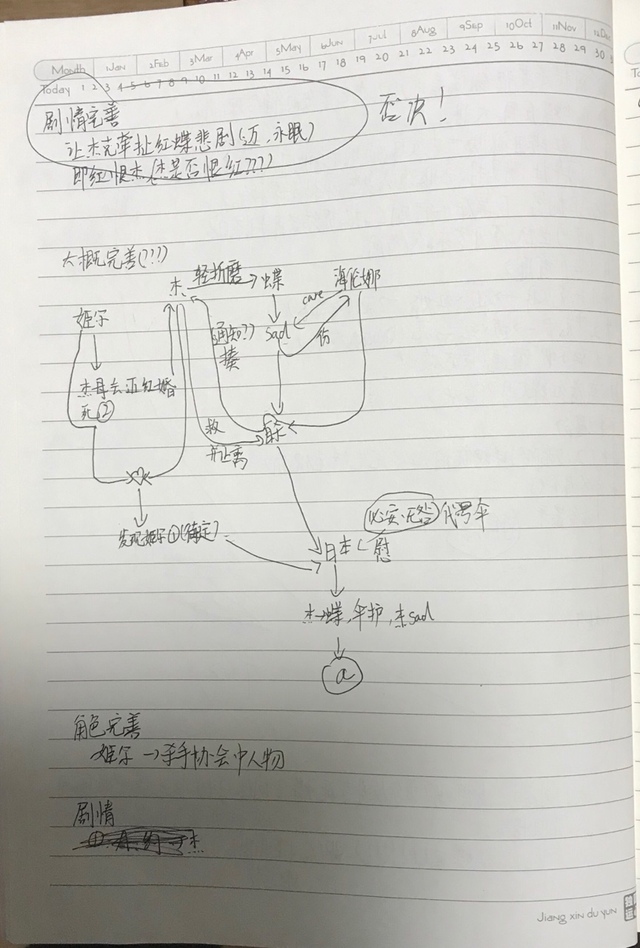 Month 1Jan 2Feb 3Mar 4Apr 5May 6Jun 7Jul 8Aug 9Sep 10Oct 11Nov 12De
Today 1 2 3 4 5 6 7 8 9 10 11 12 13 14 15 16 17 18 19 20 21 22 23 24 25 26 27 28 29 30
剧情完善
否决!
让杰克牵扯红蝶悲剧(迈,永眠)
即红恨杰(杰是否恨红???)
大概完善(???)
杰 轻折磨 蝶 海伦娜
care
姬尔 通知?) sad 伤
揍
杰再去迈红婚
死②
救
并让离
必安·无咎 代号伞
发现姬尔①(确定) 日本 慰
杰→蝶,伞护,杰sad
a
角色完善
姬尔→杀手协会中人物
剧情
杰
Jiang xin du yun